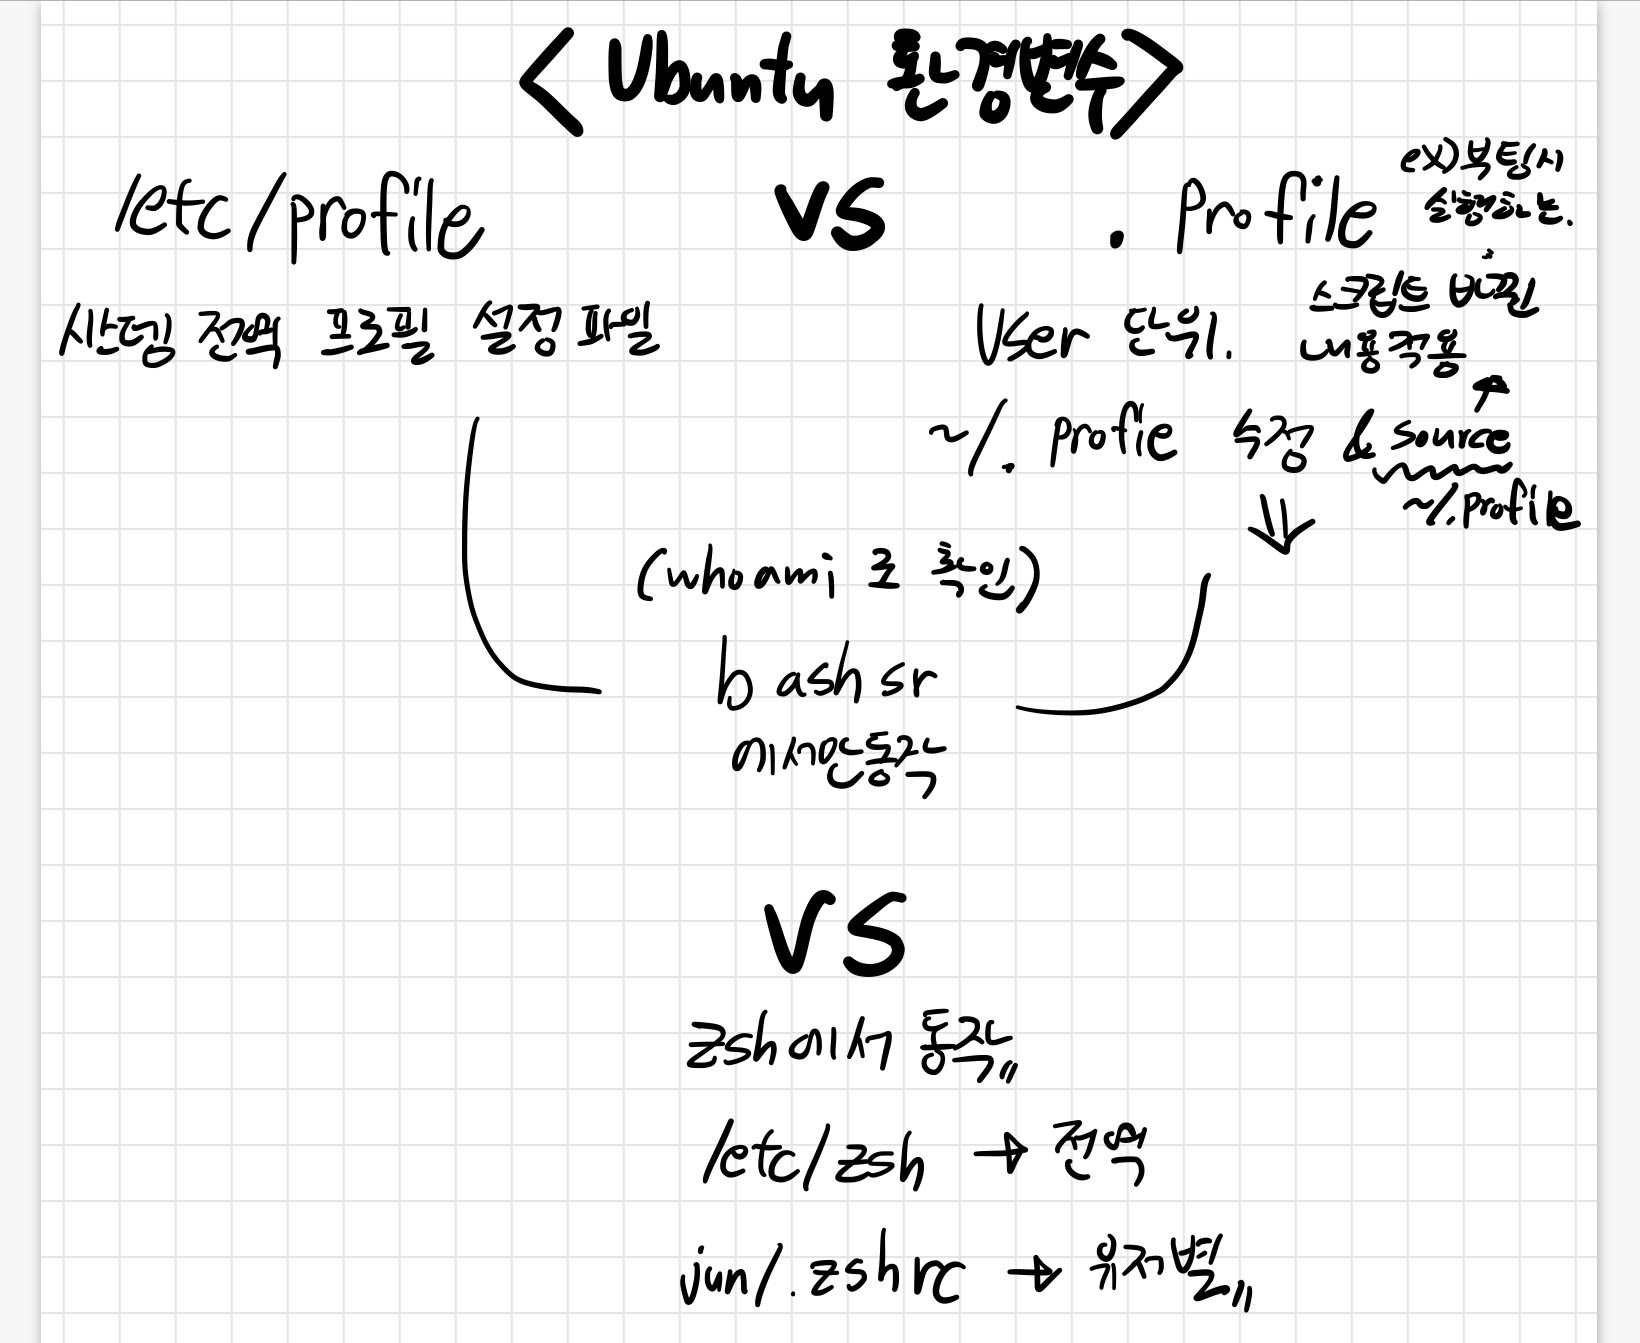 < Ubuntu 환경변수>
/etc/profile VS .Profile ex)부팅시
실행하는.
산뎀 전역 프로필 설정파일
User 단위. 스크립트 바뀐
내용적용
~/.profie 수정 & source
~/.profile
(whoami로 확인)
bash sr
에서만동작
VS
zsh에서 동작〃
/etc/zsh → 전역
jun/.zshrc → 유저별〃